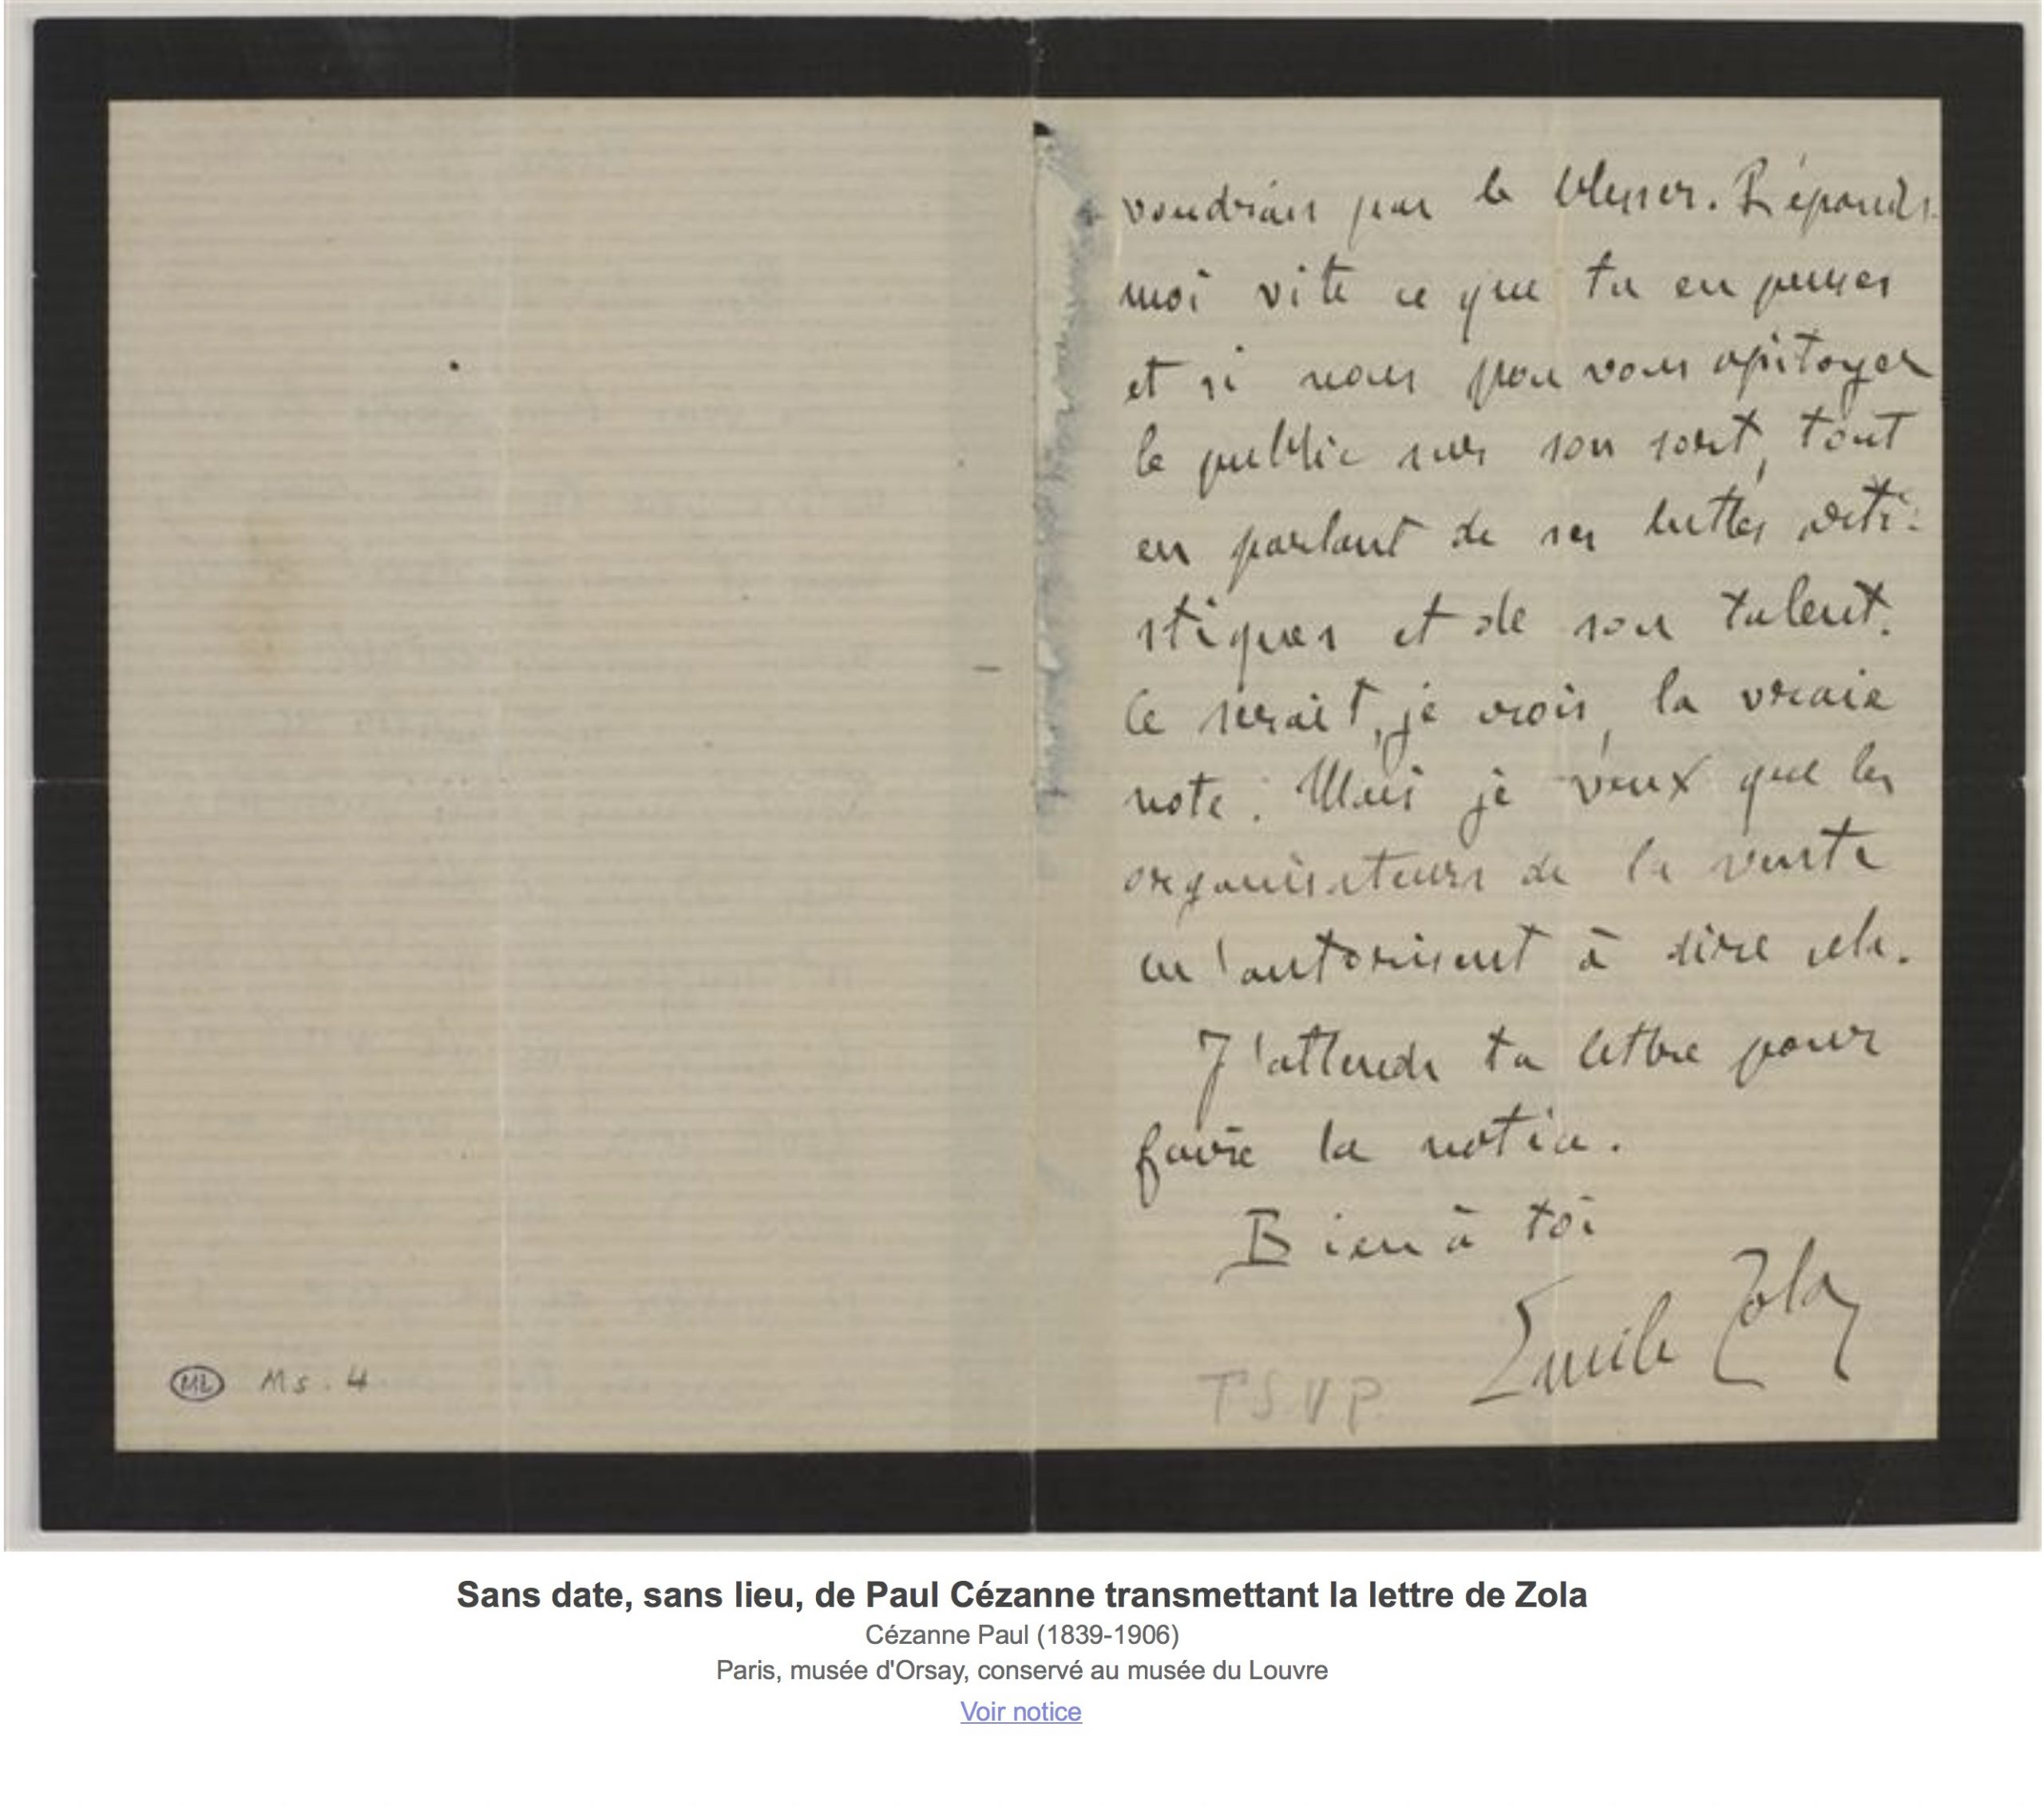 voudrais pas le blesser. Réponds
moi vite ce que tu en penses
et si nous pouvons apitoyer
le public sur son sort, tout
en parlant de ses luttes arti-
stiques et de son talent.
Ce serait, je crois, la vraie
note. Mais je veux que les
organisateurs de la vente
m'autorisent à dire cela.
J'attends ta lettre pour
faire la notice.
Bien à toi
Emile Zola
T.S.V.P.
ML Ms. 4
Sans date, sans lieu, de Paul Cézanne transmettant la lettre de Zola
Cézanne Paul (1839-1906)
Paris, musée d'Orsay, conservé au musée du Louvre
Voir notice